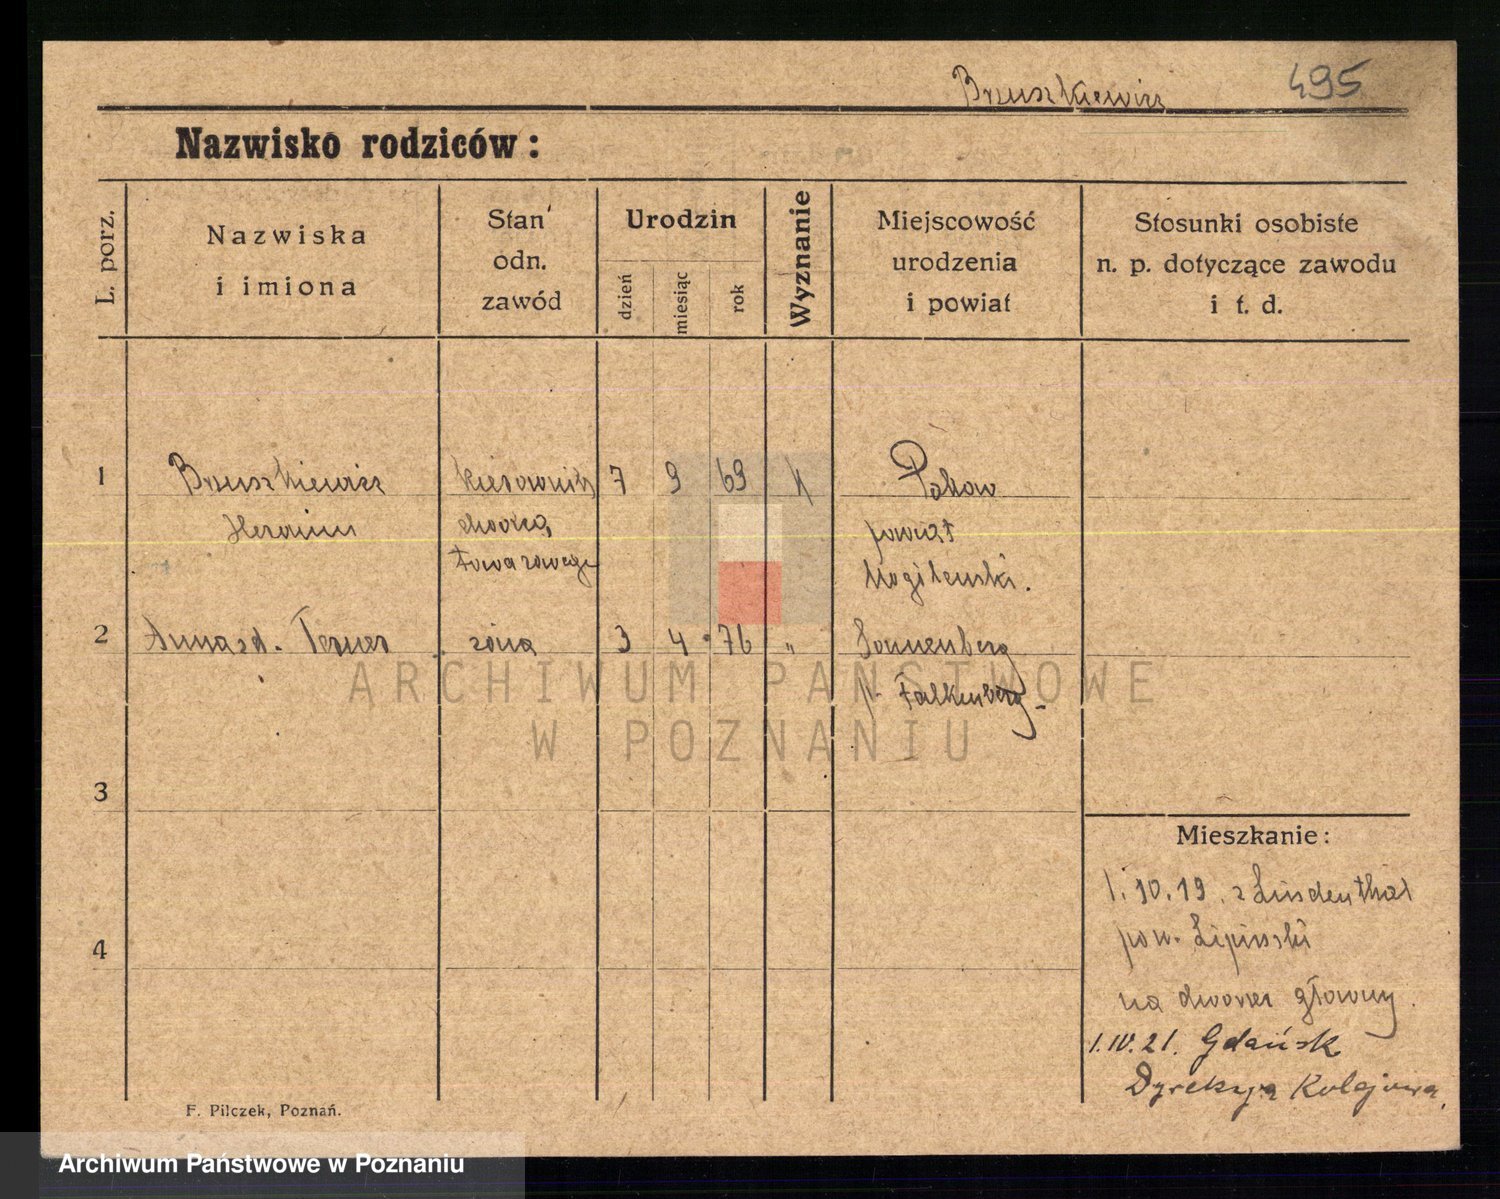 Bruszkiewicz 495
Nazwisko rodziców:
L. porz.
Nazwiska
i imiona
Stan
odn.
zawód
Urodzin
dzień
miesiąc
rok
Wyznanie
Miejscowość
urodzenia
i powiat
Stosunki osobiste
n. p. dotyczące zawodu
i t. d.
1 Bruszkiewicz kierownik 7 9 69 k
Hieronim dworca powiat
towarowego Mogilenski.
2 Anna zd. żona 3 4 76 " Sonnenberg
p. Falkenberg
ARCHIWUM PAŃSTWOWE
W POZNANIU
3
Mieszkanie:
1.10.19. z Lindenthal
4 pow. Lipinski
na dworzec główny.
1.IV.21. Gdańsk
Dyrekcya Kolejowa,
F. Pilczek, Poznań.
Archiwum Państwowe w Poznaniu